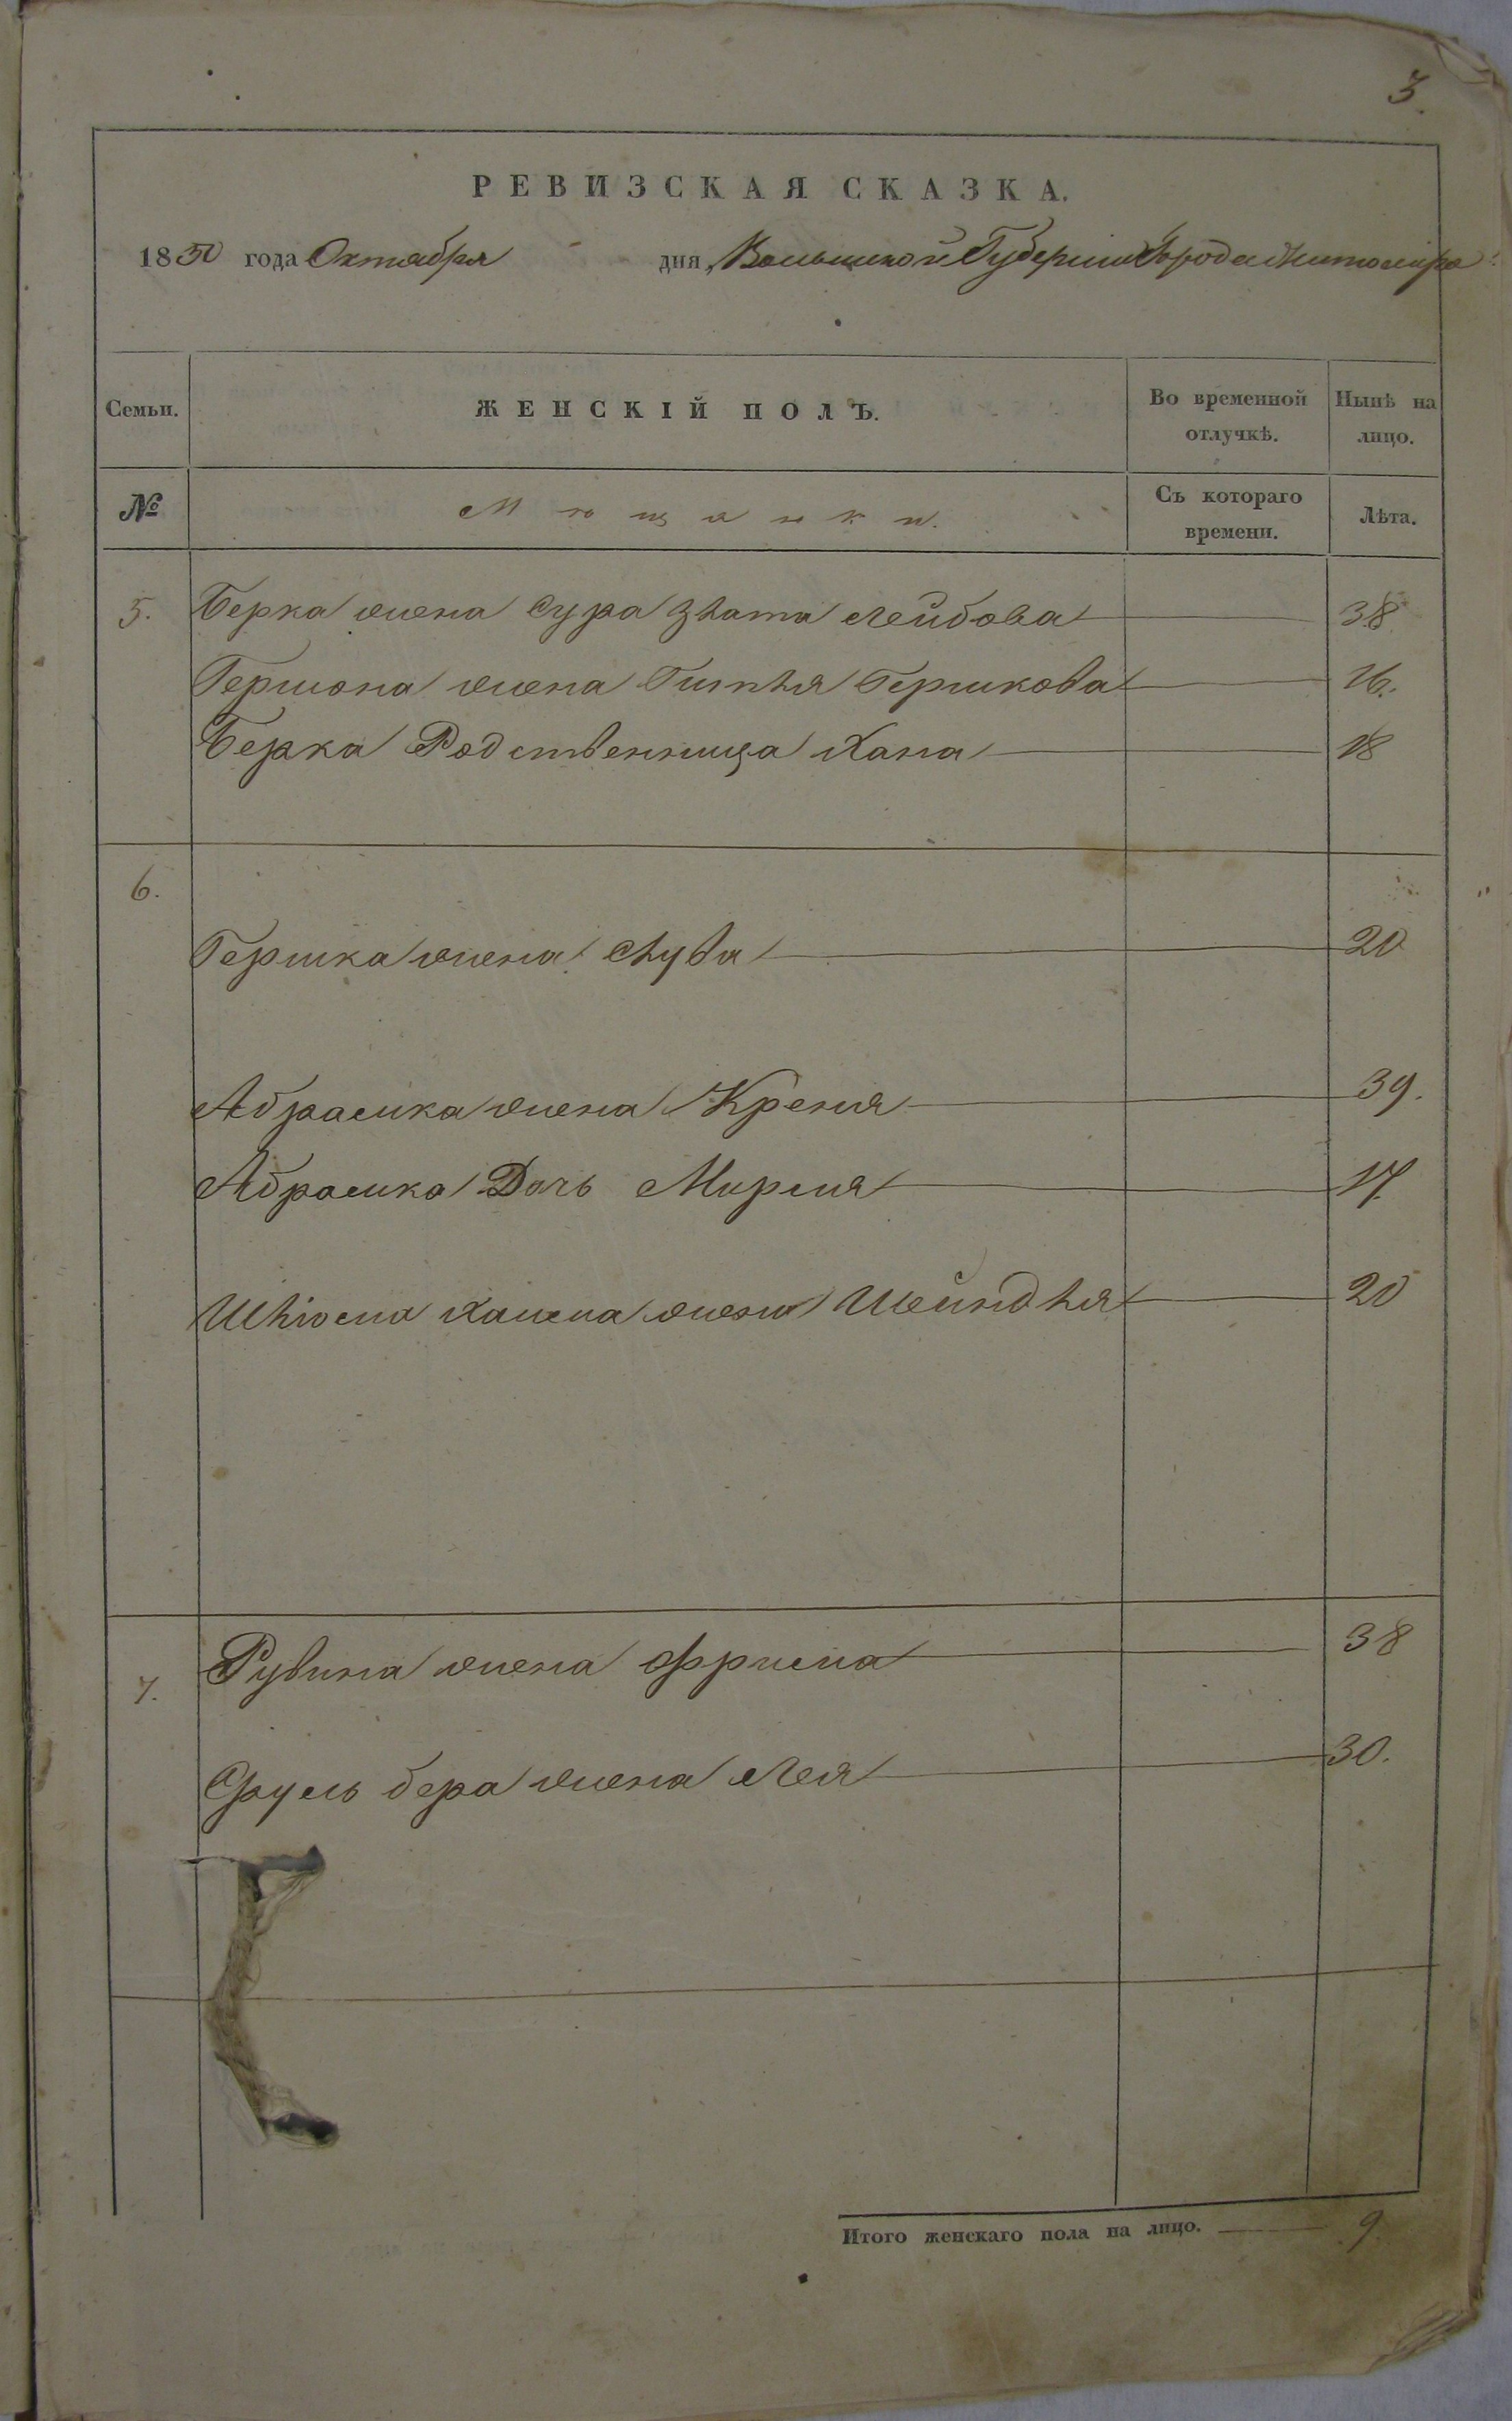 3.
РЕВИЗСКАЯ СКАЗКА.
1850 года Октября дня, Волынской Губернии Города Житомира
Семьи.
ЖЕНСКІЙ ПОЛЪ.
Во временной отлучкѣ.
Нынѣ на лицо.
№
Мѣщанки.
Съ котораго времени.
Лѣта.
5. Берка жена Сура Злата Лейбова 38
Гершона жена Гитля Гершкова 16.
Берка Родственница Хана 18
6.
Гершка жена 20
Абрамка жена Креня 39.
Абрамка Дочь Мирля 17.
Шлiома Хаима жена Шейндля 20
7. Рувина жена Фрима 38
Сруль бера жена Лея 30.
Итого женскаго пола на лицо. 9.